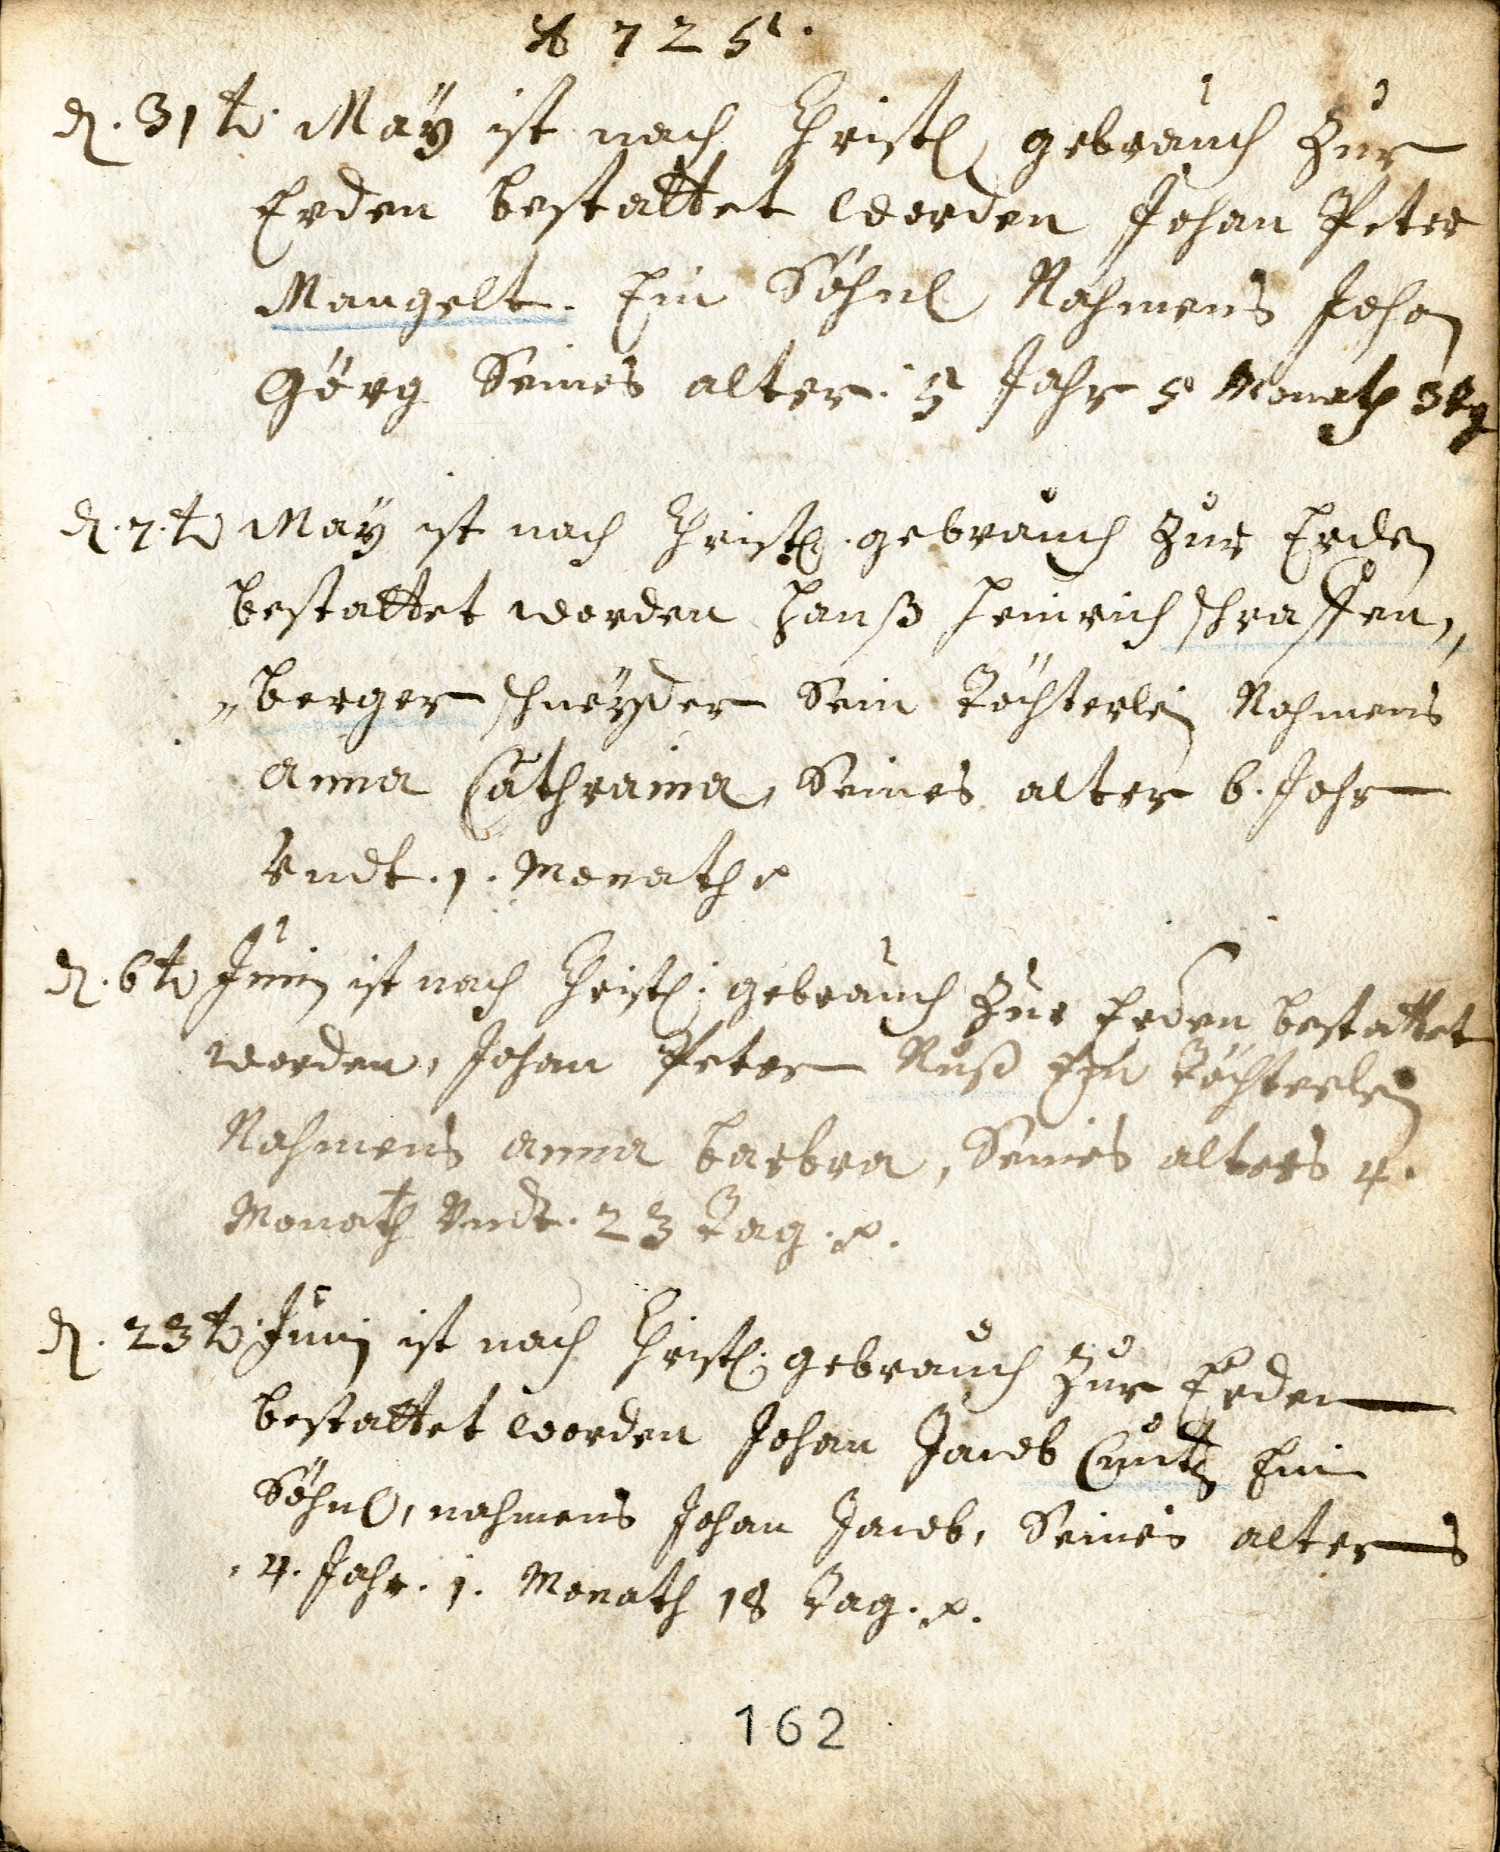 A 725.
d. 31t. Maÿ ist nach Christl gebrauch Zur
Erden bestattet worden Johan Peter
Mangelt. Ein Söhnl Nahmens Johan
Görg Seines alter. 5 Jahr 5 Monath 3 tg
d. 7. t Maÿ ist nach Christl. gebrauch zur Erden
bestattet worden Hanß Heinrich schraffen,,
,,berger schneÿder Sein Töchterlein Nahmens
anna Cathraina, Seines alter 6. Jahr
Undt. 1. Monath
d. 6t Junij ist nach Christl. gebrauch Zur Erden bestattet
worden, Johan Peter Nuß Ein Töchterlein
Nahmens anna barbra, Seines alters 4.
Monath Undt. 23 Tag.
d. 23t. Junij ist nach Christl. gebrauch Zur Erden
bestattet worden Johan Jacob Cuntz Ein
Söhnl, nahmens Johan Jacob, Seines alters
4. Jahr. 1. Monath 18 Tag.
162